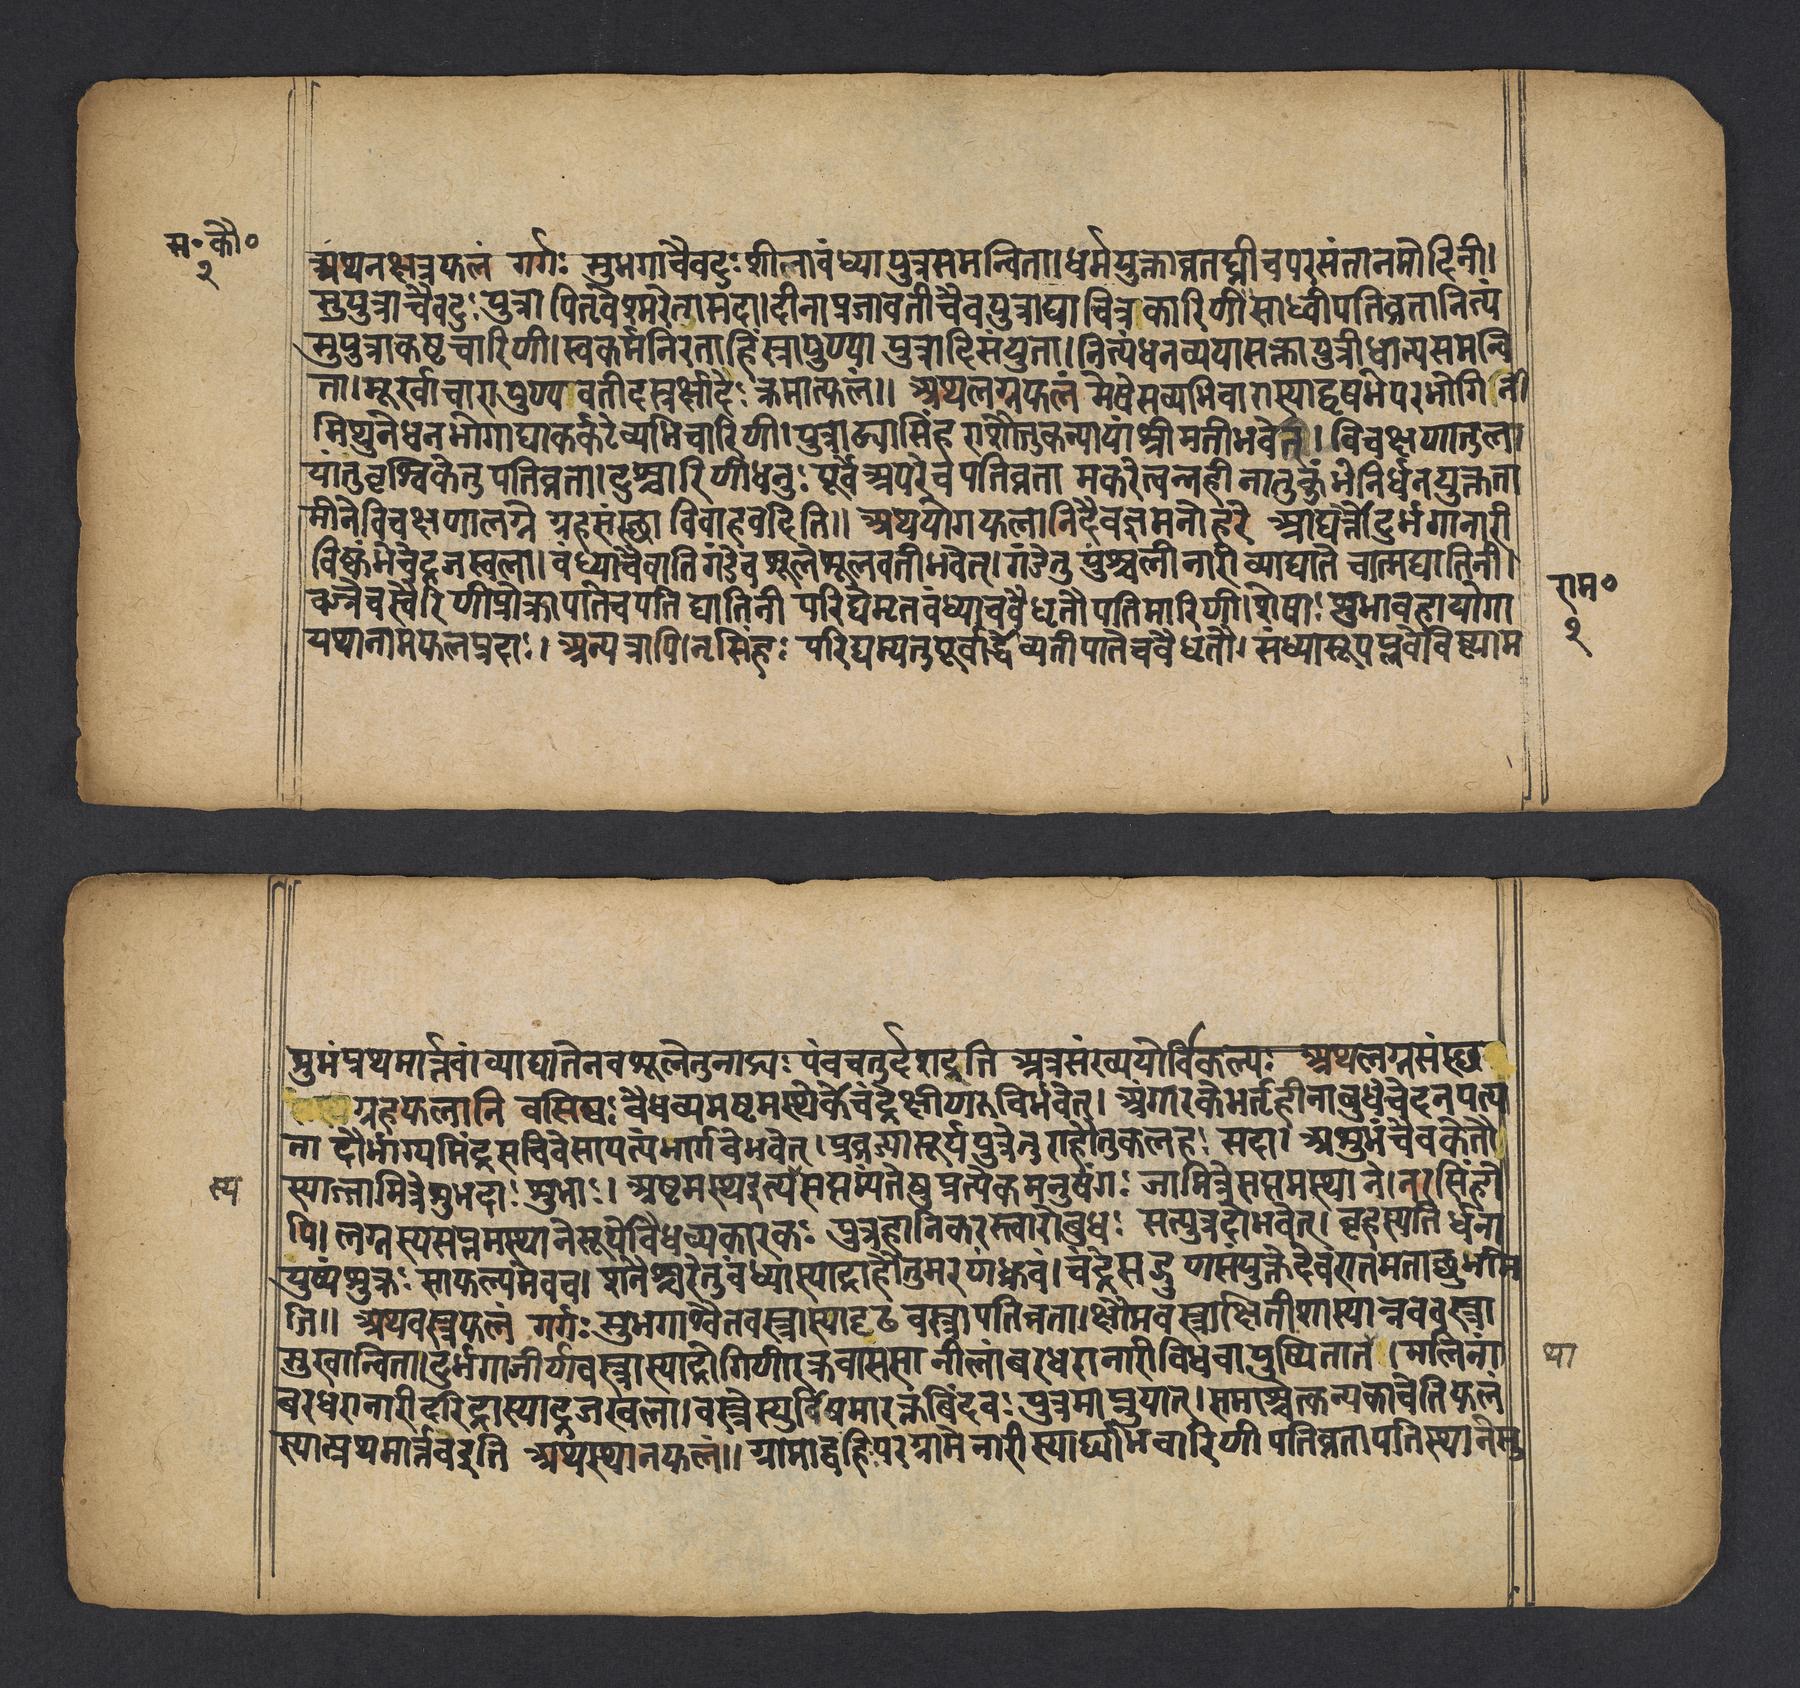 म॰कौ॰
२
अथनक्षत्रफलं गर्गः सुभगाचैवदुःशीलावंध्यापुत्रसमन्विता।धर्मयुक्ताव्रतघ्नीचपरसंतानमोदिनी।
सुपुत्राचैवदुःपुत्रापितृवेश्मरतासदा।दीनाप्रजावतीचैवपुत्राघाचित्रकारिणीसाध्वीपतिव्रतानित्यं
सुपुत्राकष्टचारिणी।स्वकर्मनिरताहिंस्त्रापुण्या पुत्रादिसंयुता।नित्यंधनव्ययासक्तापुत्रीधान्यसमन्वि
ता।मूर्खाचारापुण्यावतीदस्त्रर्क्षादेःक्रमात्फलं॥ अथलग्नफलं मेषेसव्यभिचारास्याद्वृषभेपरभोगिनी
मिथुनेधनभोगाघाकर्कटेव्यभिचारिणी।पुत्राढ्यासिंहराशौतुकन्यायांश्रीमतीभवेत्।विचक्षणातुला
यांतुवृश्चिकेतुपतिव्रता।दुश्चारिणीधनुःपूर्वेअपरेचपतिव्रता मकरेत्वन्नहीनातुकुंभेनिर्धनयुक्तता
मीनेविचक्षणालग्ने ग्रहसंस्छा विवाहवदिति॥ अथयोगफलानिदैवज्ञमनोहरे आघर्त्तौदुर्भगानारी
विष्कंभेचेद्रजस्वला।वंध्याचैवातिगंडेचशूलेशूलवतीभवेत्।गंडेतु पुंश्चलीनारी व्याघातेचात्मघातिनी।
वज्रेचस्वैरिणीप्रोक्तापातेचपतिघातिनी परिघेमृतवंध्याचवैधृतौपतिमारिणी।शेषाःशुभावहायोगा
यथानामफलप्रदाः। अन्यत्रापि।नृसिंहः परिघम्यतुपूर्वार्द्धेव्यतीपातेचवैधृतौ।संध्यासूपप्लवेविष्ट्याम
राम॰
२
शुभंप्रथमार्त्तवं।व्याघातेनवशूलेतुनाड्यःपंचचतुर्दशइति अत्रसंख्ययोर्विकल्पः अथलग्नसंस्छ
ग्रहफलानि वसिष्ठःवैधव्यमष्टमस्थेर्केचंद्रेक्षीणाविर्भवेत्। अंगारकेभर्तृहीनाबुधेचेदनपत्य
ता दौर्भाग्यमिंदुसचिवेसापत्यंभार्गवेभवेत्।प्रव्रज्यासूर्यपुत्रेतुराहौतुकलहःसदा।अशुभंचैवकेतौ
स्याज्जामित्रेशुभदाःशुभाः। अष्टमस्थइत्यसप्तम्यंतेषुप्रत्येकमनुषंगः जामित्रेसप्तमस्थाने।नरसिंहो
स्य
पि।लग्नस्यसप्तमस्थानेसूर्योवैधव्यकारकः पुत्रहानिकरस्त्वारोबुधः सत्पुत्रदोभवेत्।बृहस्पतिर्धना
युष्यंशुक्रः साफल्यमेवच।शनैश्चरेतुवंध्यास्याद्राहौतुमरणंध्रुवं।चंद्रेसद्गुणसंयुक्तेदेवरातमताच्छुभमि
ति॥ अथवस्त्रफलं गर्गः सुभगाश्वेतवस्त्रास्याद्दृढवस्त्रापतिव्रता।क्षौमवस्त्राक्षितीशास्यान्नववस्त्रा
सुखान्विता।दुर्भगाजीर्णवस्त्रास्याद्रोगिणीरक्तवाससा नीलांबरधरानारीविधवापुष्पितातं।मलिनां
था
बरधरानारीदरिद्रास्याद्रजस्वला।वस्त्रेस्युर्विषमारक्तबिंदवःपुत्रमाप्नुयात्।समाश्चत्कन्यकाचेतिफलं
स्यात्प्रथमार्त्तवइति अथस्थानफलं॥ ग्रामाद्बहिःपरग्रामेनारीस्याद्व्यभिचारिणी पतिव्रतापतिस्थानेसु